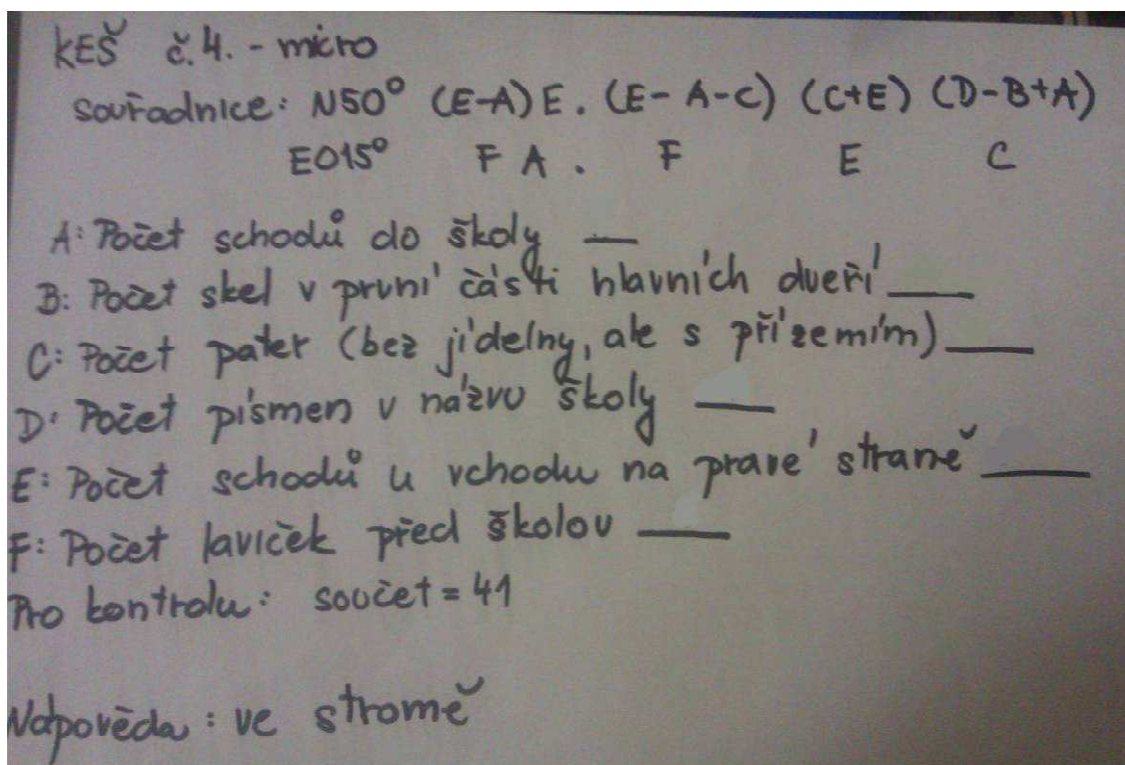 KEŠ č.4. - micro
souřadnice: N50° (E-A) E . (E- A-C) (C+E) (D-B+A)
E015° F A . F E C
A: Počet schodů do školy __
B: Počet skel v první části hlavních dveří ___
C: Počet pater (bez jídelny, ale s přízemím) ___
D: Počet písmen v názvu školy ___
E: Počet schodů u vchodu na pravé straně ___
F: Počet laviček před školou ___
Pro kontrolu: součet = 41
Nápověda: ve stromě